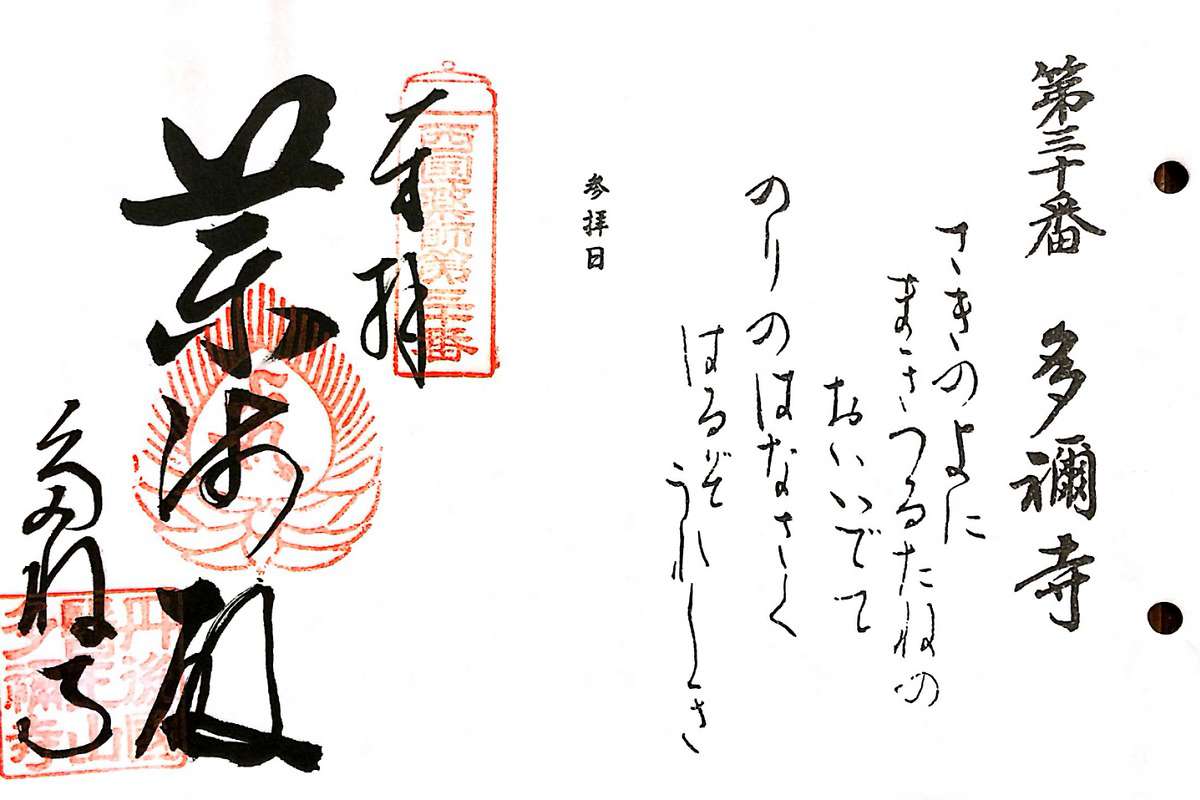 第三十番　多禰寺
さきのよに
まきつるたねの
おいいでて
のりのはなさく
はるぞうれしき
参拝日
奉拝
西国薬師第三十番
薬師殿
多祢寺
丹後国
医王山
多禰寺